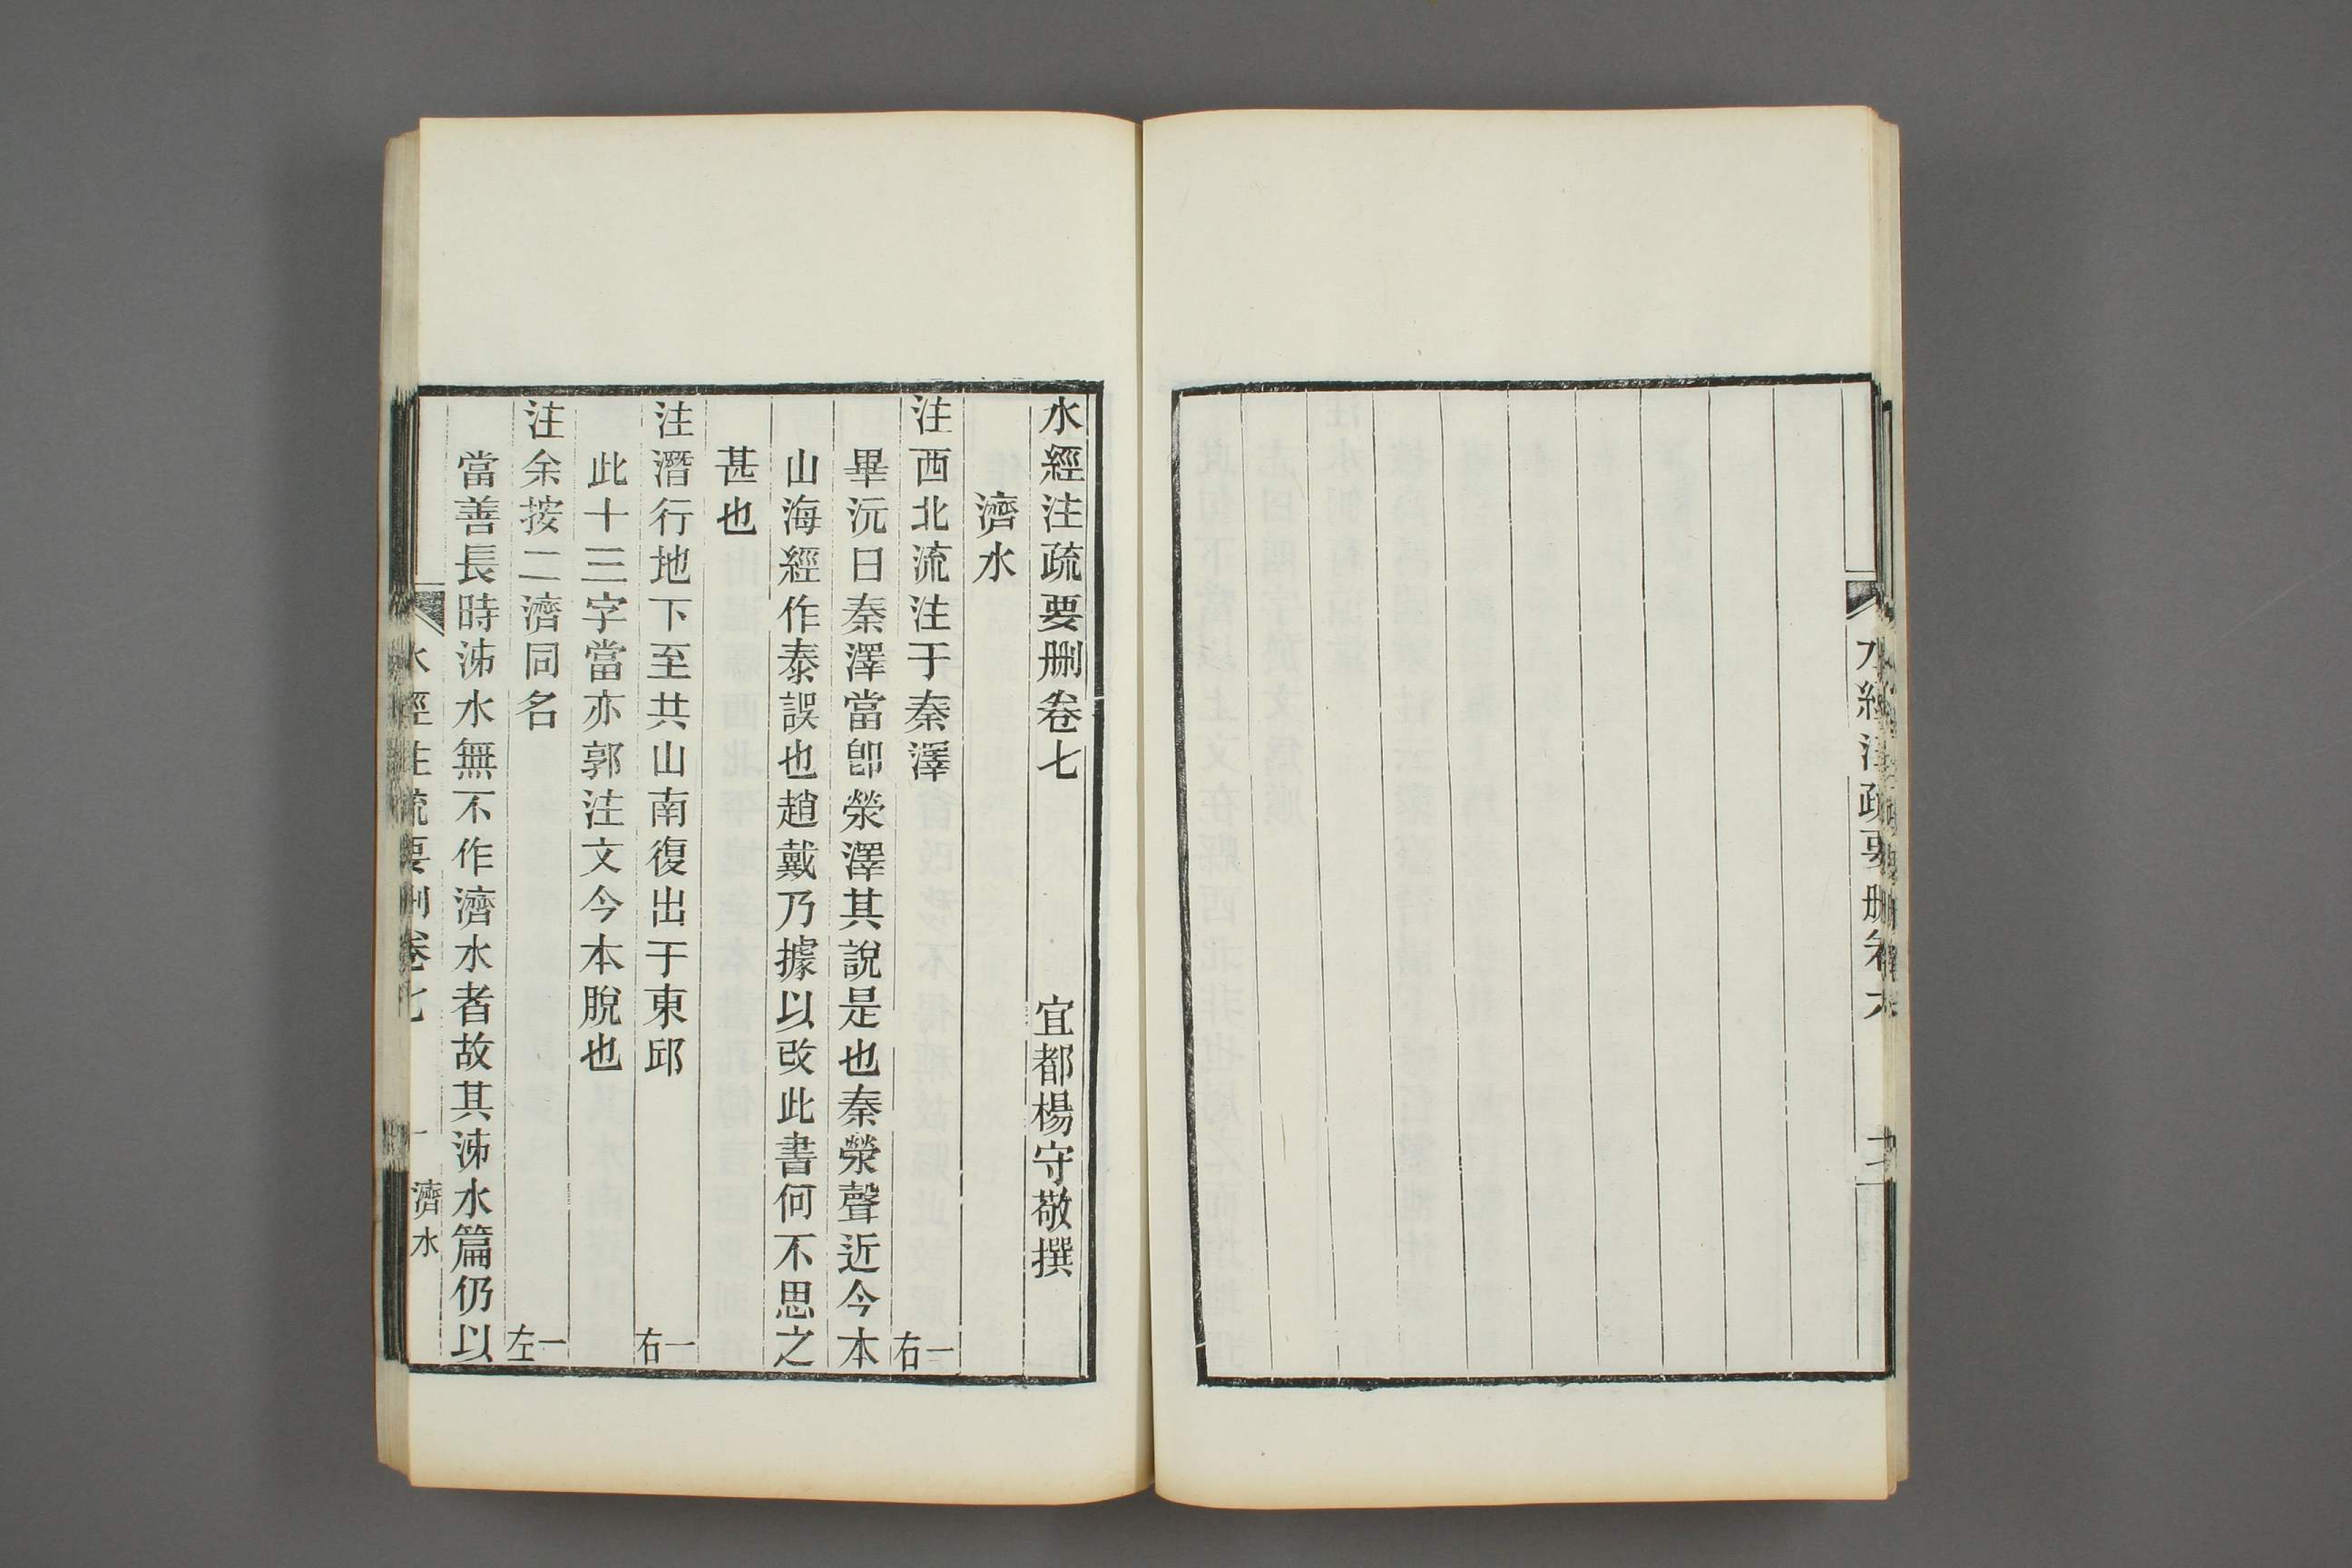 水經注疏要删卷六
水經注疏要删卷七 宜都楊守敬撰
濟水
注西北流注于秦澤 一右
畢沅曰秦澤當卽滎澤其說是也秦滎聲近今本
山海經作泰誤也趙戴乃據以改此書何不思之
甚也
注潛行地下至共山南復出于東邱 一右
此十三字當亦郭注文今本脫也
注余按二濟同名 一左
當善長時泲水無不作濟水者故其泲水篇仍以
水經注疏要刪卷七 一 濟水